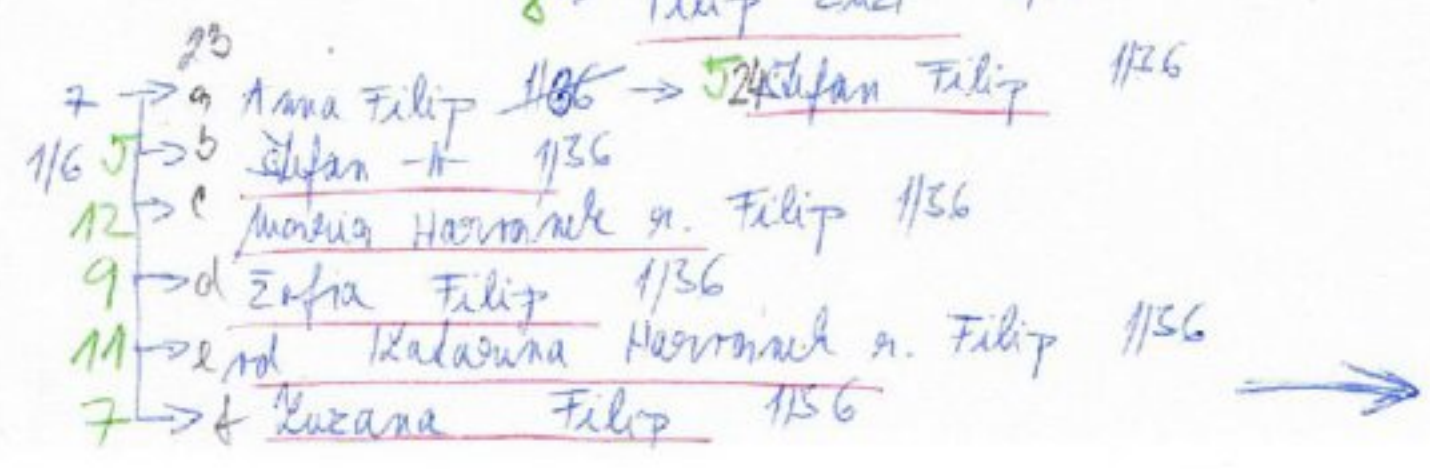 8 Filip
23
7 → a Anna Filip 1/36 → 5 24 Štefan Filip 1/36
1/6 5 → b Štefan -||- 1/36
12 → c Mária Harvánek r. Filip 1/36
9 → d Žofia Filip 1/36
11 → e rd Katarína Harvánek r. Filip 1/36
7 → f Zuzana Filip 1/36